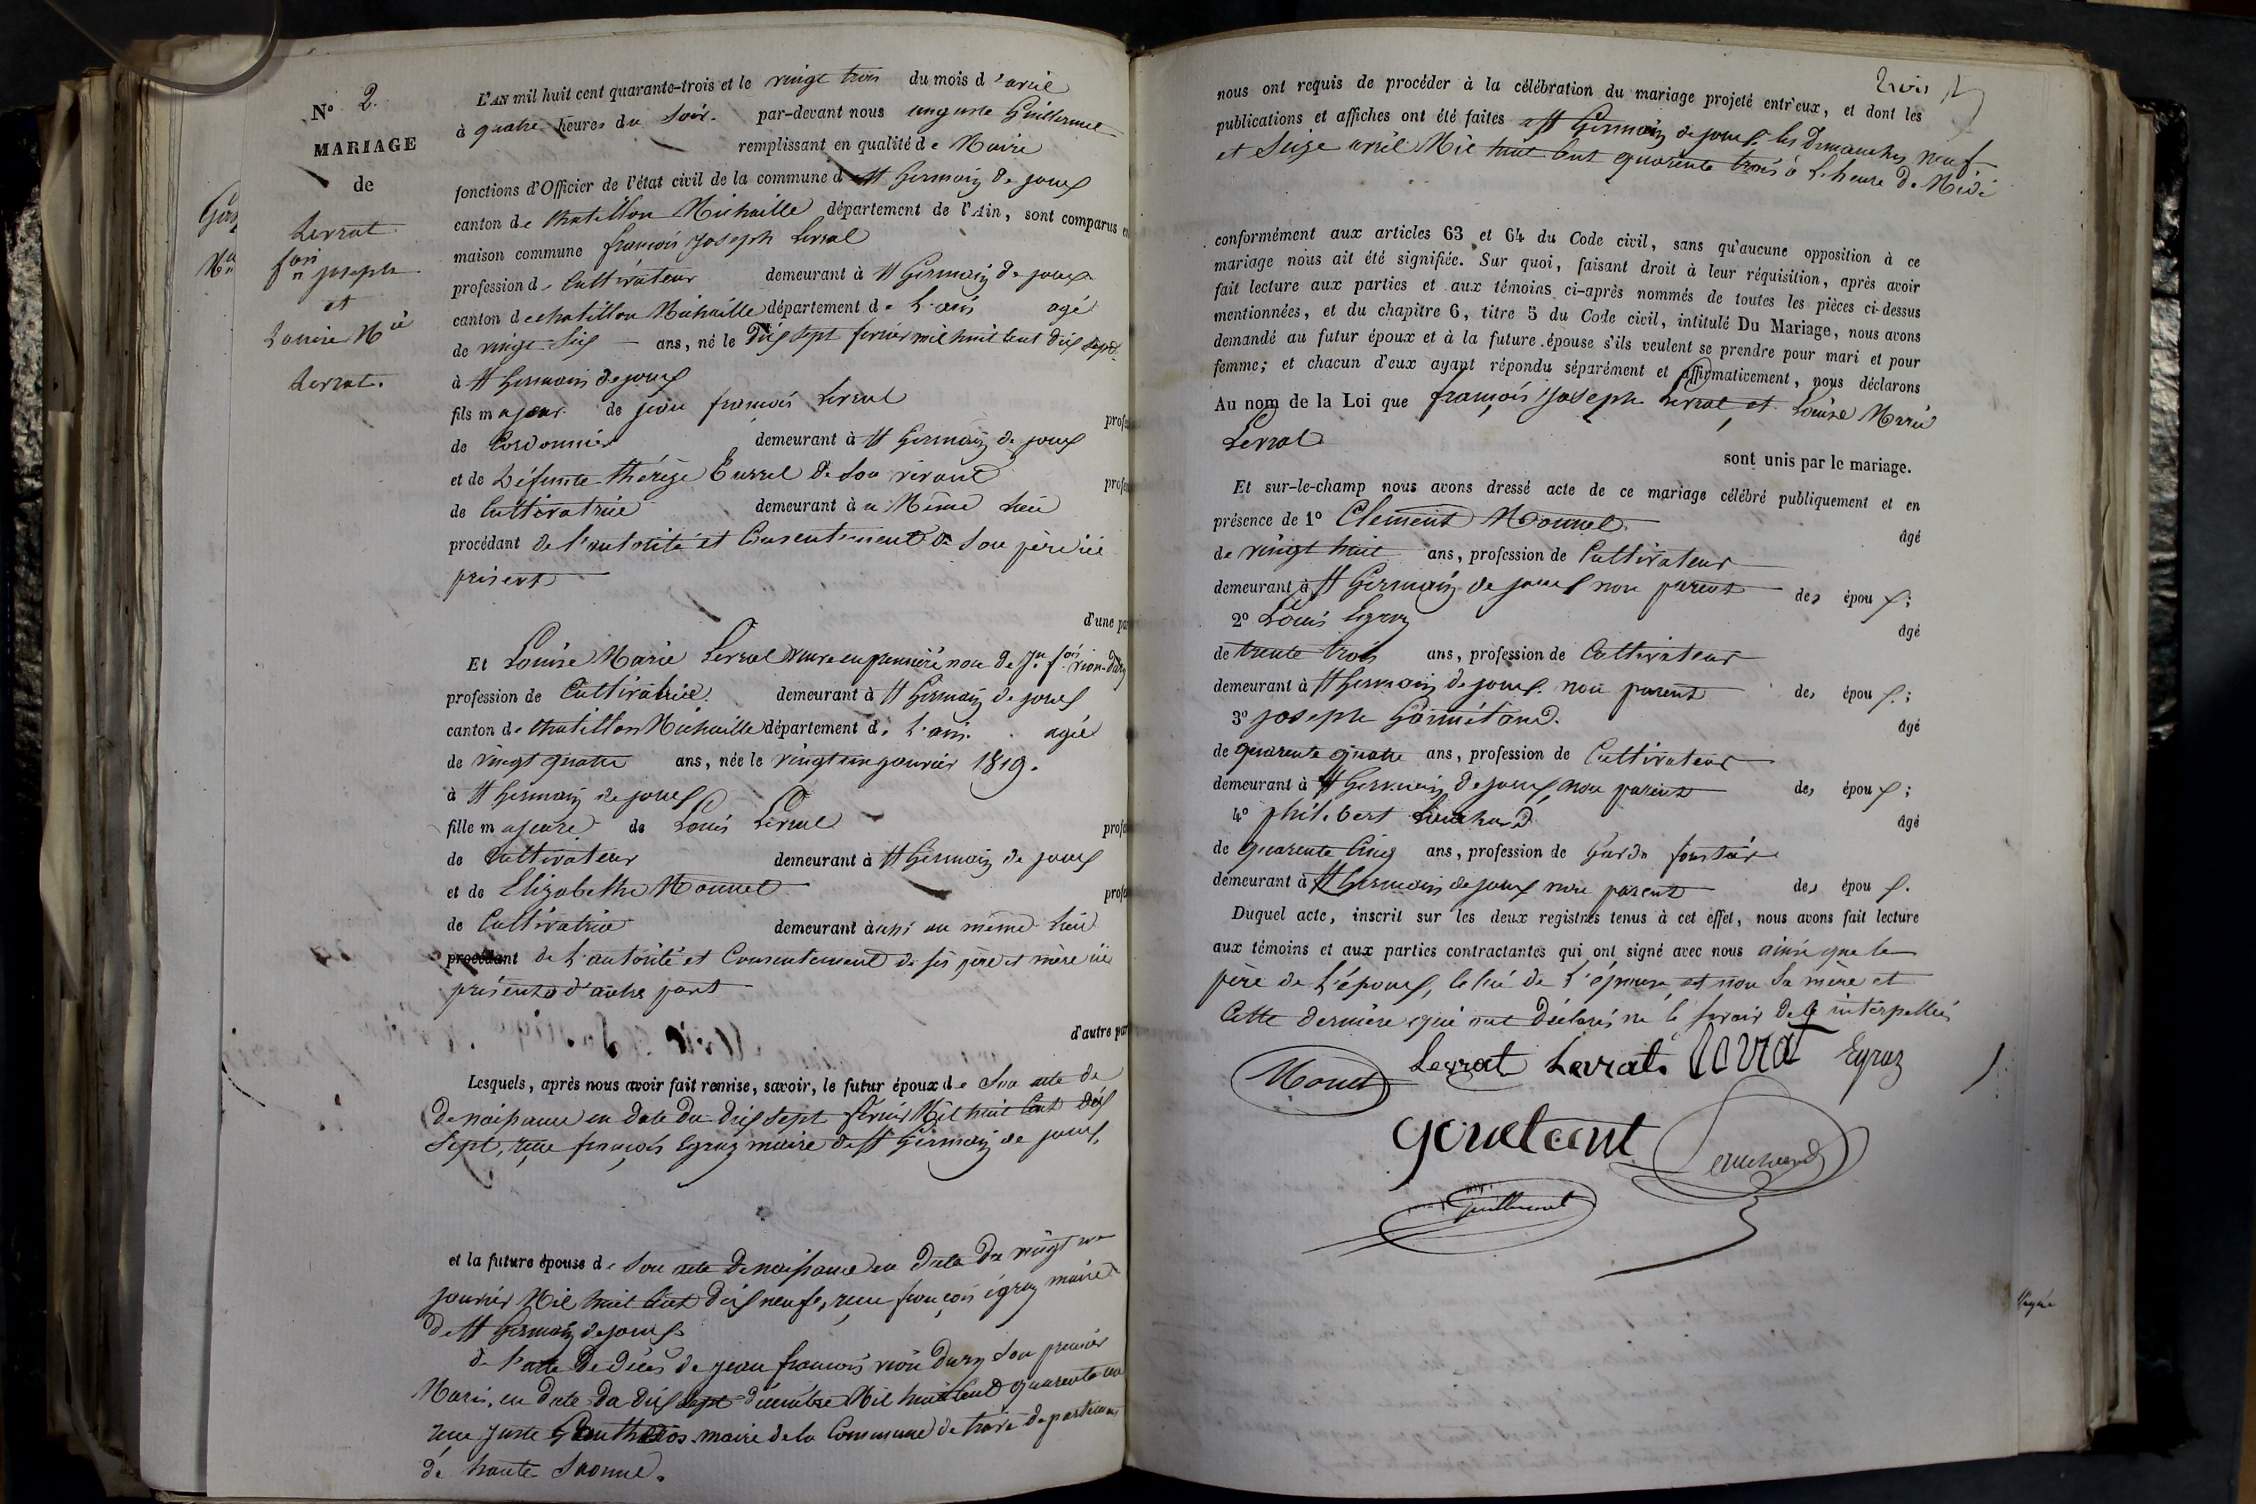 N° 2.
MARIAGE
de
Levrat
fois joseph
et
Louise Mie
Levrat.
L'AN mil huit cent quarante-trois et le vingt trois du mois d'avril
à quatre heures du soir. par-devant nous auguste Guillermet
remplissant en qualité de Maire
fonctions d'Officier de l'état civil de la commune d St Germain de joux
canton de chatillon Michaille département de l'Ain, sont comparus en
maison commune françois joseph Levrat
profession de Cultivateur demeurant à St Germain de joux
canton de chatillon Michaille département de L'ain agé
de vingt six ans, né le dix sept fevrier mil huit cent dix sept.
à St Germain de joux
fils majeur de jean françois Levrat profes
de Cordonnier demeurant à St Germain de joux
et de Défunte thérèse Burrel de son vivant profes
de Cultivatrice demeurant à u Même Lieu
procédant de l'autorité et Consentement de son père ici
présent
d'une par
Et Louise Marie Levrat veuve en première noce de Jn fois rion-Dury
profession de Cultivatrice demeurant à St Germain de joux
canton de chatillon Michaille département de L'ain. agée
de vingt quatre ans, née le vingt un janvier 1819.
à St Germain de joux
fille majeure de Louis Levrat profes
de Cultivateur demeurant à St Germain de joux
et de Elizabethe Monnet profes
de Cultivatrice demeurant aussi au même lieu
procédant de L'autorité et Consentement de ses père et mère ici
présents d'autre part
d'autre par
Lesquels, après nous avoir fait remise, savoir, le futur époux de Son acte de
de naissance en date du dix sept fevrier Mil huit Cent dix
Sept, reçu françois Egraz maire de St Germain de joux.
et la future épouse de Son acte de naissance en date du vingt un
janvier Mil huit Cent dix neufe, reçu françois égraz maire
de St Germain de joux
de l'acte de décès de jean françois rion Dury son premier
Maris, en date du dix sept décembre Mil huit Cent quarante un
reçu juste maire de la Commune de département
de haute Saonne.
trois
nous ont requis de procéder à la célébration du mariage projeté entr'eux, et dont les
publications et affiches ont été faites a St Germain de joux les dimanches neuf
et Seize avril Mil huit Cent quarente trois à L'heure de Midi
conformément aux articles 63 et 64 du Code civil, sans qu'aucune opposition à ce
mariage nous ait été signifiée. Sur quoi, faisant droit à leur réquisition, après avoir
fait lecture aux parties et aux témoins ci-après nommés de toutes les pièces ci-dessus
mentionnées, et du chapitre 6, titre 5 du Code civil, intitulé Du Mariage, nous avons
demandé au futur époux et à la future épouse s'ils veulent se prendre pour mari et pour
femme; et chacun d'eux ayant répondu séparément et affirmativement, nous déclarons
Au nom de la Loi que françois joseph Levrat et Louise Marie
Levrat
sont unis par le mariage.
Et sur-le-champ nous avons dressé acte de ce mariage célébré publiquement et en
présence de 1° Clement Monnet. âgé
de vingt huit ans, profession de Cultivateur
demeurant à St Germain de joux non parent des époux;
2° Louis Egraz âgé
de trente trois ans, profession de Cultivateur
demeurant à St Germain de joux non parent des époux;
3° joseph Gonnetand. âgé
de quarente quatre ans, profession de Cultivateur
demeurant à St Germain de joux, non parent des époux;
4° philibert âgé
de quarente Cinq ans, profession de Garde forestier
demeurant à St Germain de joux non parent des époux.
Duquel acte, inscrit sur les deux registres tenus à cet effet, nous avons fait lecture
aux témoins et aux parties contractantes qui ont signé avec nous ainsi que le
père de L'époux, celui de L'épouse et non Sa mère et
Cette dernière qui ont déclarés ne le savoir de ce interpellées
Monet Levrat Levrat. Levrat Egraz
Guillermet